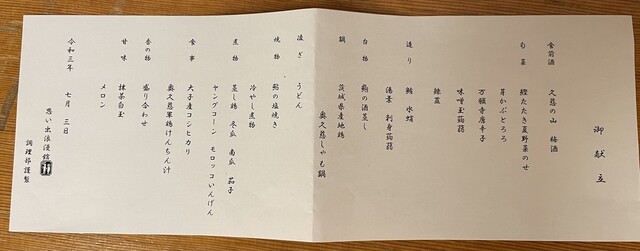 御献立
食前酒 久慈の山 梅酒
旬菜 鰹たたき夏野菜のせ
芽かぶとろろ
万願寺唐辛子
味噌玉蒟蒻
辣韮
造り 鮪 水蛸
湯葉 刺身蒟蒻
台物 鮑の酒蒸し
鍋 茨城県産地鶏
奥久慈しゃも鍋
凌ぎ うどん
焼物 鮎の塩焼き
煮物 冷やし煮物
蒸し鶏 冬瓜 南瓜 茄子
ヤングコーン モロッコいんげん
食事 大子産コシヒカリ
奥久慈軍鶏けんちん汁
香の物 盛り合わせ
甘味 抹茶白玉
メロン
令和三年 七月 三日
思い出浪漫館
調理部謹製